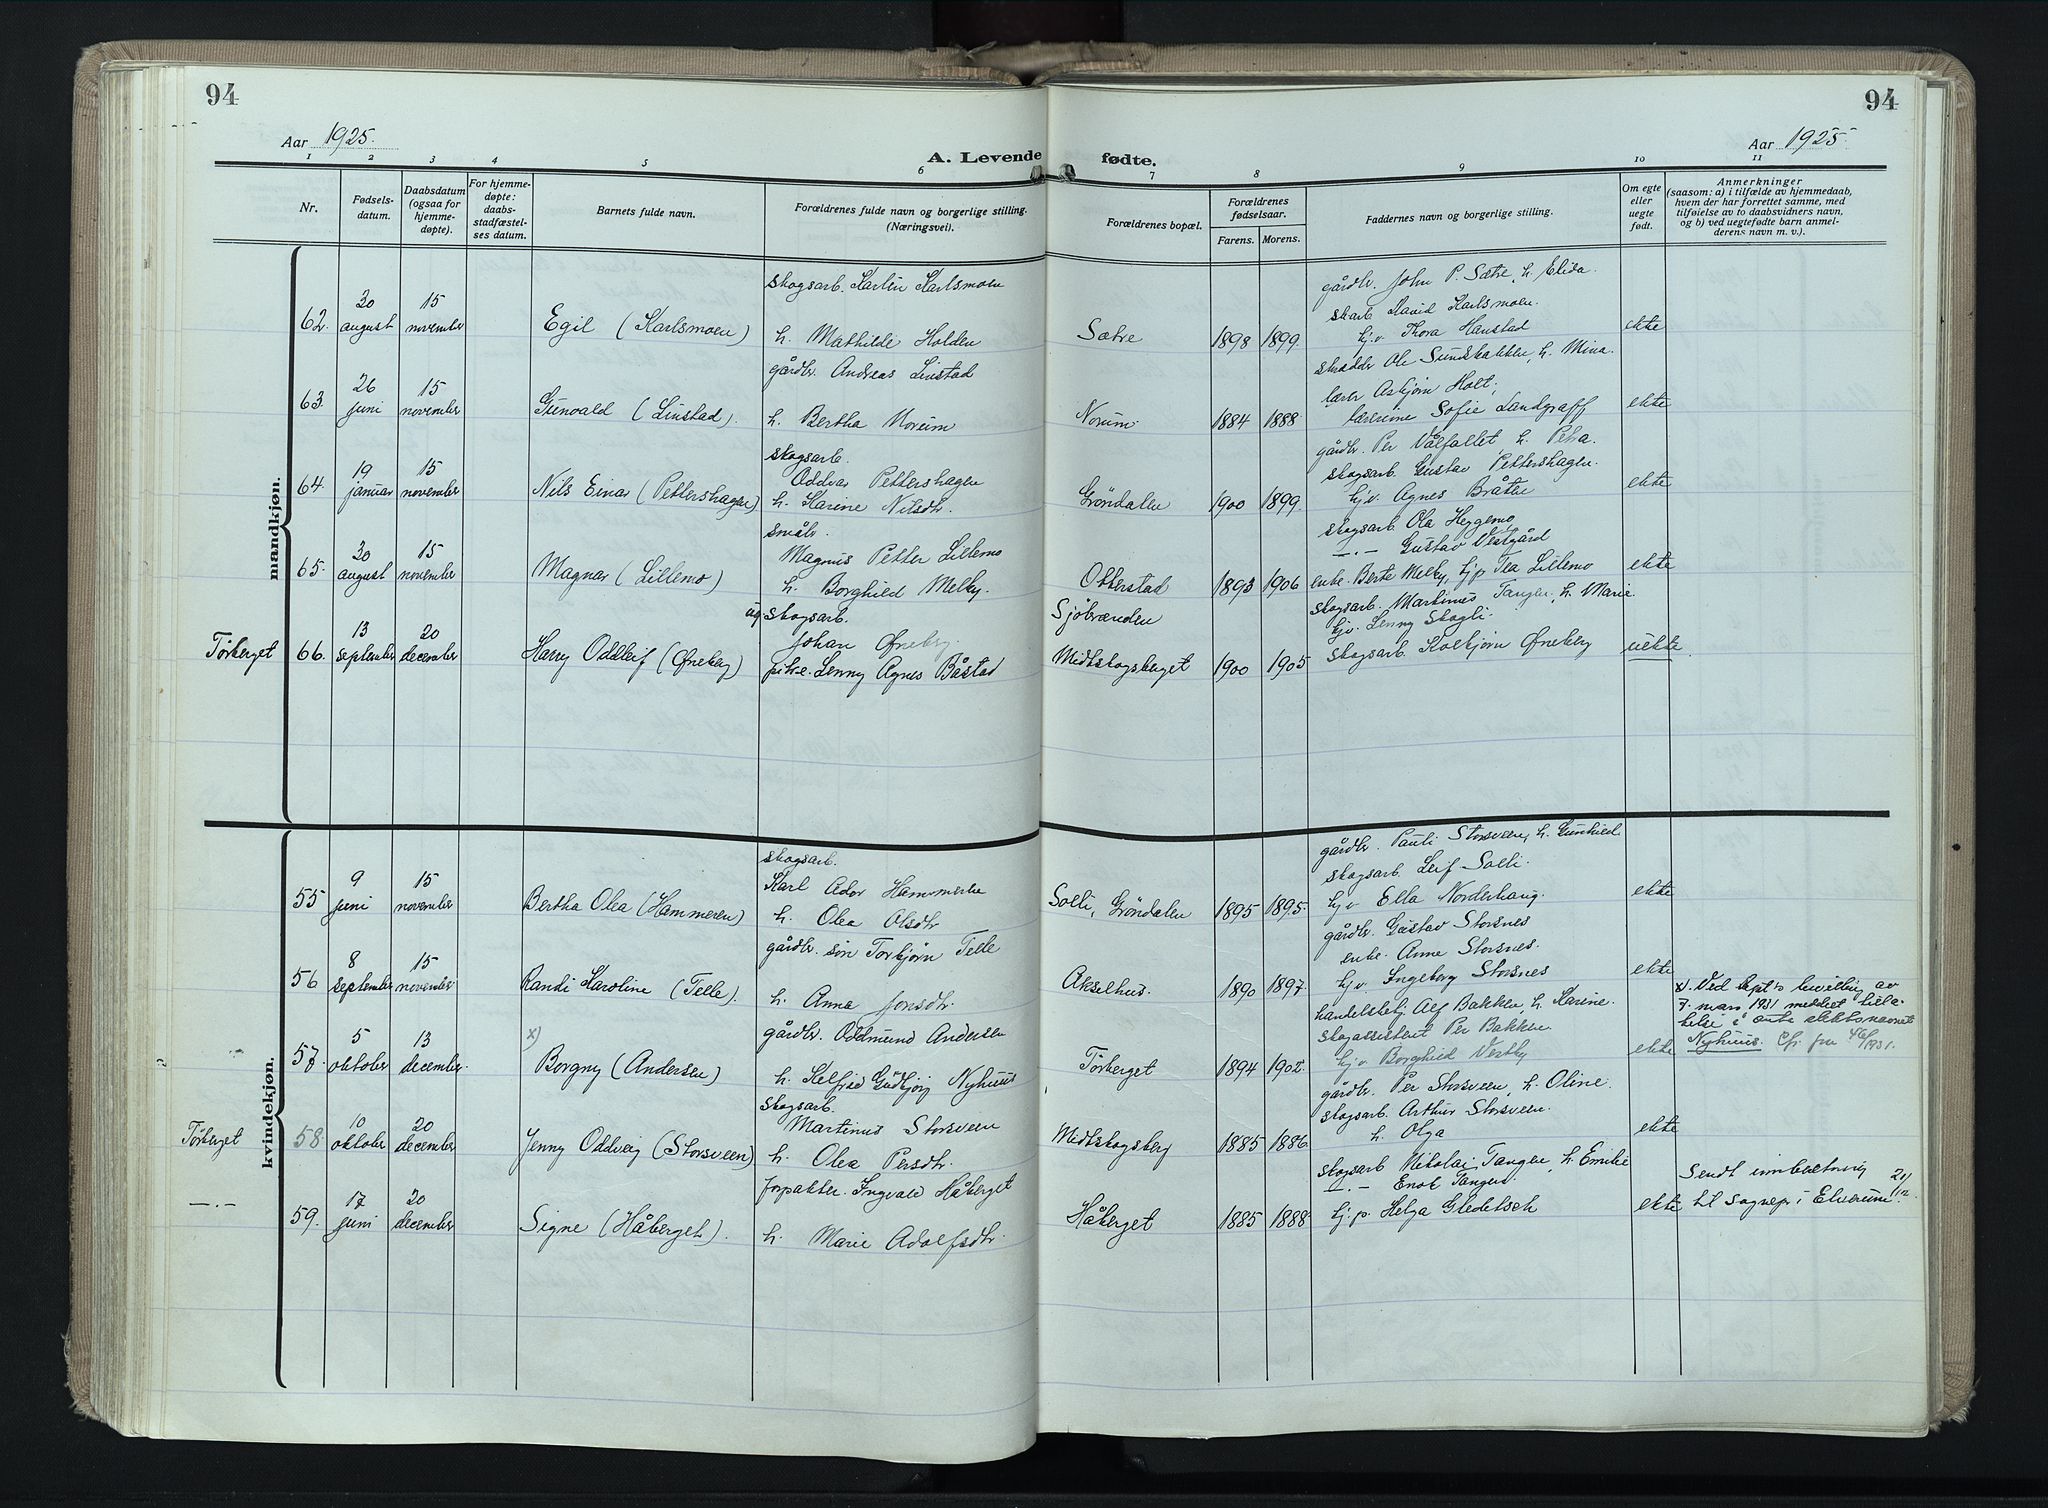 94
94
Aar 1925.
Aar 1925
A. Levende fødte.
1 2 3 4 5 6 7 8 9 10 11
Nr.
Fødsels-
datum.
Daabsdatum
(ogsaa for
hjemme-
døpte).
For hjemme-
døpte:
daabs-
stadfæstel-
ses datum.
Barnets fulde navn.
Forældrenes fulde navn og borgerlige stilling.
(Næringsvei).
Forældrenes bopæl.
Forældrenes
fødselsaar.
Farens. Morens.
Faddernes navn og borgerlige stilling.
Om egte
eller
uegte
født.
Anmerkninger
(saasom: a) i tilfælde av hjemmedaab,
hvem der har forrettet samme, med
tilføielse av to daabsvidners navn,
og b) ved uegtefødte barn anmel-
derens navn m. v.).
mandkjøn.
62. 30 august 15 november Egil (Karlsmoen)
skogsarb. Karlin Karlsmoen
h. Mathilde Holden
Sætre 1898 1899.
gårdbr. John P. Sætre, h. Elida.
skarb David Karlsmoen.
hj.v. Thora Hanstad
ekte
63. 26 juni 15 november Gunvald (Linstad).
gårdbr. Andreas Linstad
h. Bertha Norum
Norum. 1884 1888
skrædder Ole Sundbakken, h. Mina.
lærer Asbjørn Holt.
lærerinne Sofie Landgraff
ekte
64. 19 januar 15 november Nils Einar (Pettershagen)
skogsarb.
Oddvar Pettershagen
h. Karine Nilsdtr.
Grøndalen 1900 1899.
gårdbr. Per Vålfallet h. Petra.
skogsarb. Gustav Pettershagen.
hj.v. Agnes Bråten
ekte
65. 30 august 15 november Magnar (Lillemo)
småbr.
Magnus Petter Lillemo
h. Borghild Melby.
Otterstad 1893 1906
skogsarb. Ola Heggemo
—.— Gustav Vestgård
enke. Berte Melby, hj.p Tea Lillemo
ekte
Tørberget 66. 13 september 20 december Harry Oddleif (Øneberg)
ug. skogsarb.
Johan Øneberg.
pike. Lenny Agnes Båstad
Sjöbrænden
Midtskogsberget 1900 1905
skogsarb. Martinus Tangen, h. Marie
hj.v. Lenny Skogli.
skogsarb. Kolbjørn Øneberg
uekte.
kvindekjøn.
55 9 juni 15 november Bertha Olea (Hammeren)
skogsarb.
Karl Ador Hammeren
h. Olea Olsdtr
Solli, Grøndalen 1895 1895.
gårdbr. Pauli Storsveen, h. Gunhild
skogsarb. Leif Solli.
hj.v Ella Norderhaug.
ekte
56 8 september 15 november Randi Karoline (Telle).
gårdbr. søn Torbjørn Telle
h. Anna Jonsdtr.
Akselhus. 1890 1897.
gårdbr. Gustav Storsnes
enke. Anne Storsnes.
hj.v. Ingeborg Storsnes
ekte
57. 5 oktober 13 december. x) Borgny (Andersen)
gårdbr. Oddmund Andersen
h. Kelfrid Gudbjørg Nyhuus
Tørberget 1894 1902.
handelsbetj. Alf Bakken, h. Karine.
skogassistent Per Bakken.
hj.v. Borghild Vestby
ekte
x). Ved dept's bevilling av
7. mars 1931 meddelt tilla-
telse i ante slektsnavnet
Nyhuus. Cfr. fra 46/1931.
Tørberget 58. 10 oktober 20 december Jenny Oddveig (Storsveen)
skogsarb.
Martinus Storsveen
h. Olea Persdtr.
Midtskogsberg 1885 1886.
gårdbr. Per Storsveen, h. Oline.
skogsarb. Arthur Storsveen.
h. Olga
ekte
—.— 59. 17 juni 20 december Signe (Håberget).
forpakter. Ingvald Håberget
h. Marie Adolfsdtr.
Håberget 1885 1888.
skogsarb Nikolai Tangen, h. Emilie
—.— Enok Tangen.
hj.p. Helga Gledetsch
ekte
Sendt innberetning 21/12.
til sognepr. i Elverum